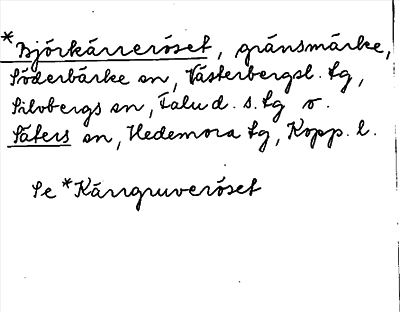 *Björkärreröset, gränsmärke,
Söderbärke sn, Västerbergsl. tg,
Silvbergs sn, Falu d. s. tg o.
Säters sn, Hedemora tg, Kopp. l.
Se *Kärrgruveröset